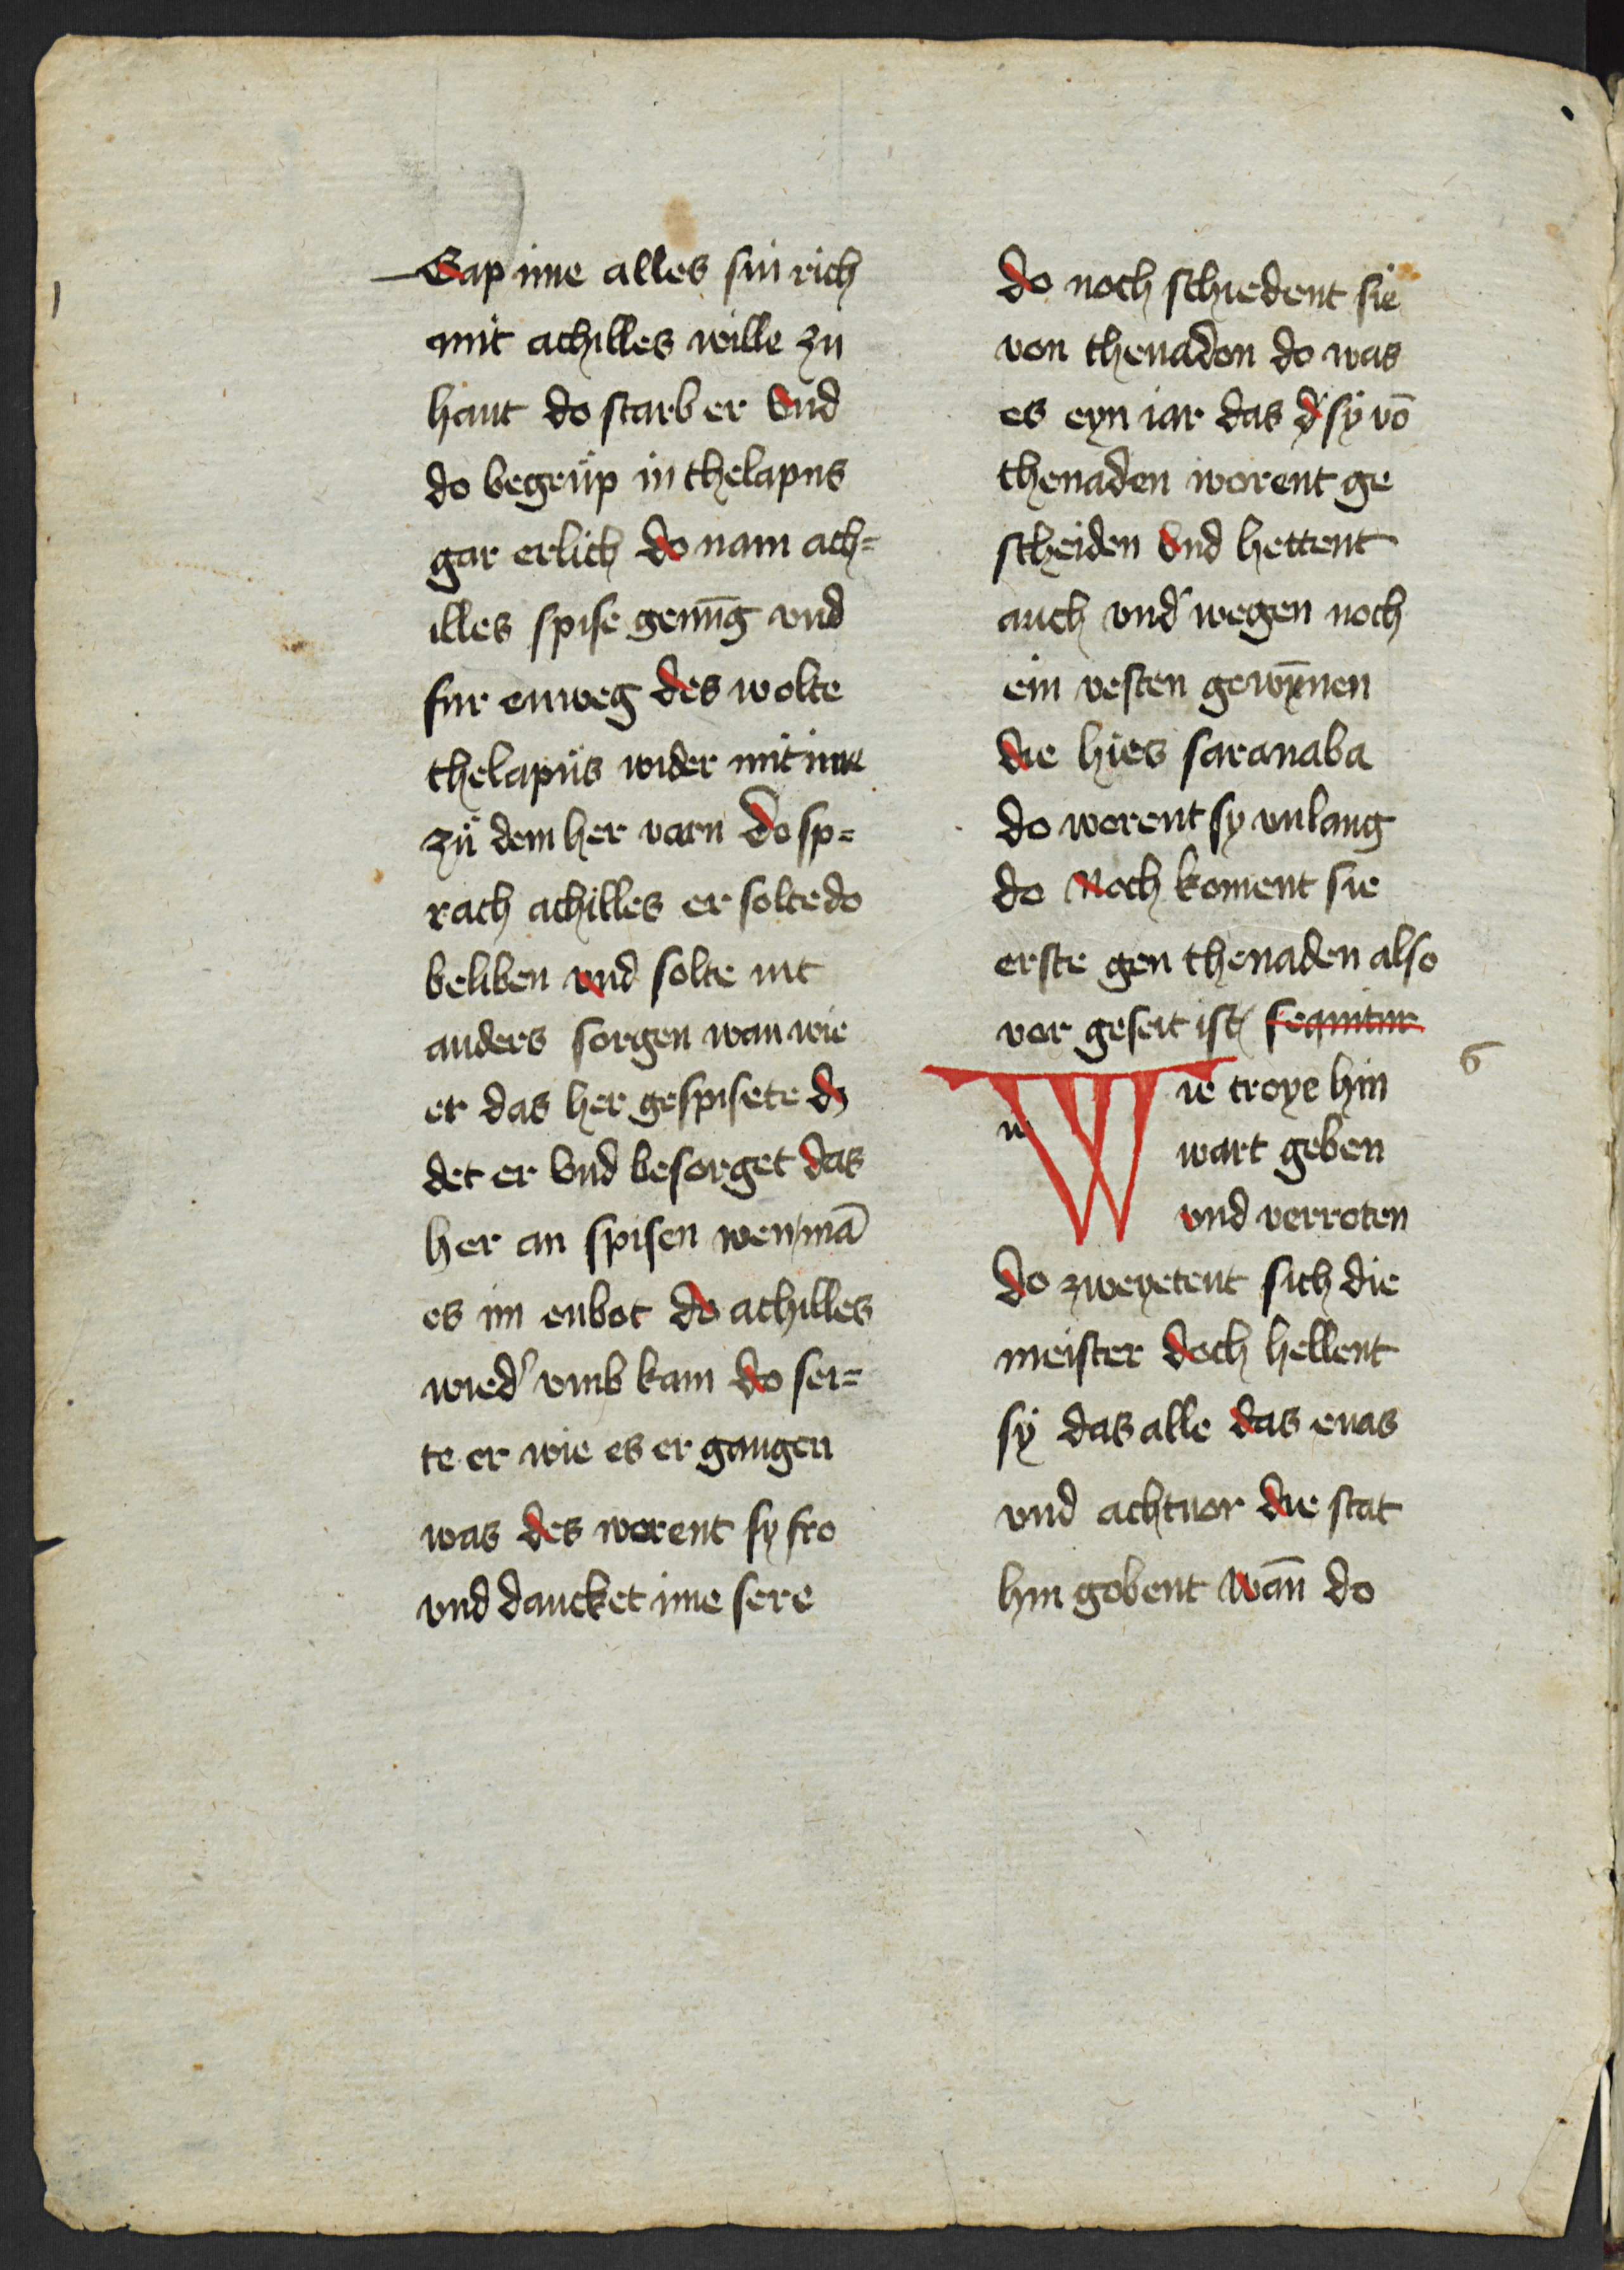 Gap ime alles sin rich
mit achilles wille zu
hant do starb er Vnd
do begrüp in thelapus
gar erlich do nam ach=
illes spise genūg vnd
fur enweg des wolte
thelapus wider mit ime
zü dem her varn Do sp=
rach achilles er solte do
beliben vnd solte nit
anders sorgen wan wie
er das her gespisete dz
det er Vnd besorget das
her an spisen wen mā
es im enbot do achilles
wied' vmb kam do sei=
te er wie es er gangen
was des worent sy fro
vnd dancket ime sere
do noch schiedent sie
von thenadon do was
es eyn iar das d' sÿ vō
thenaden worent ge
scheiden Vnd hettent
auch vnd' wegen noch
ein vesten gewȳnen
die hies saranaba
do worent sy vnlang
do Noch koment sie
erste gen thenaden also
vor geseit ist sequitur
6
Wie troye hin
w
wart geben
vnd verroten
Do zweyetent sich die
meister doch hellent
sÿ das alle das eneas
vnd achtnor die stat
hin gobent Wañ do